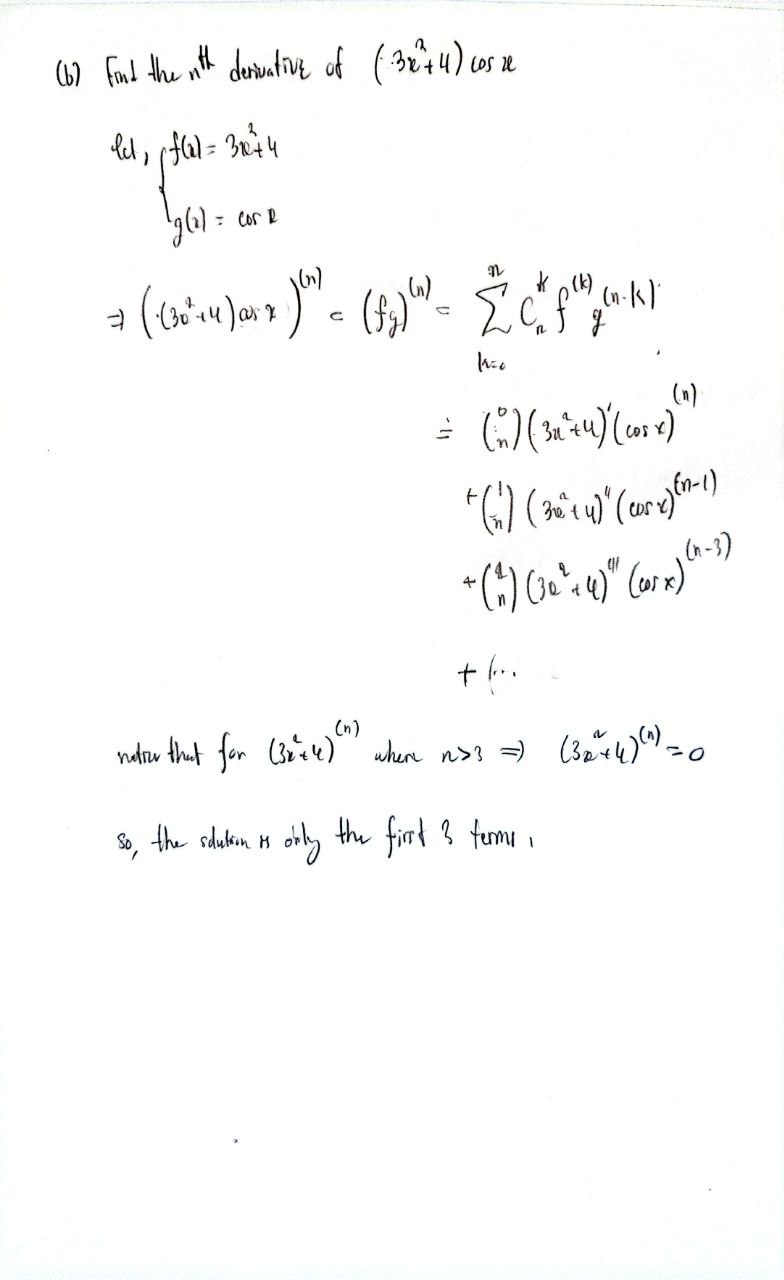 (b) Find the nth derivative of (3x²+4) cos x
let, { f(x) = 3x²+4
g(x) = cos x
⇒ ((3x²+4) cos x)^(n) = (fg)^(n) = Σ_{k=0}^{n} C_n^k f^(k) g^(n-k)
= (0 n) (3x²+4)' (cos x)^(n)
+ (1 n) (3x²+4)'' (cos x)^(n-1)
+ (2 n) (3x²+4)''' (cos x)^(n-3)
+ (...
notice that for (3x²+4)^(n) where n>3 ⇒ (3x²+4)^(n) = 0
so, the solution is only the first 3 terms.